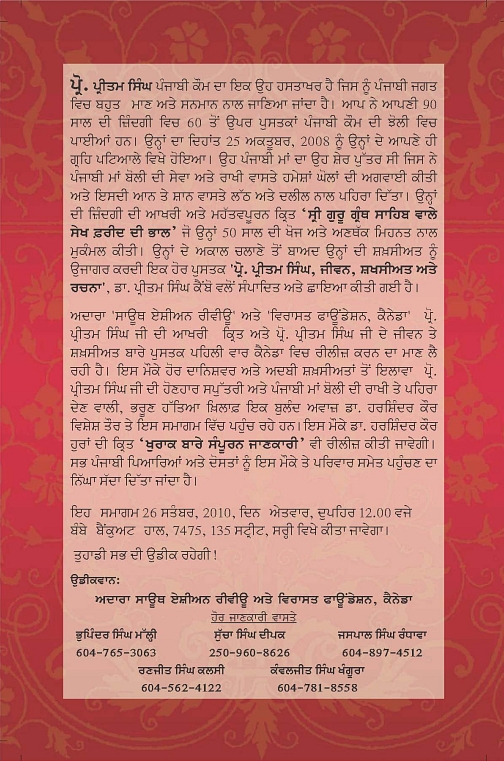 ਪ੍ਰੋ. ਪ੍ਰੀਤਮ ਸਿੰਘ ਪੰਜਾਬੀ ਕੌਮ ਦਾ ਇਕ ਉਹ ਹਸਤਾਖਰ ਹੈ ਜਿਸ ਨੂੰ ਪੰਜਾਬੀ ਜਗਤ
ਵਿਚ ਬਹੁਤ ਮਾਣ ਅਤੇ ਸਨਮਾਨ ਨਾਲ ਜਾਣਿਆ ਜਾਂਦਾ ਹੈ। ਆਪ ਨੇ ਆਪਣੀ 90
ਸਾਲ ਦੀ ਜ਼ਿੰਦਗੀ ਵਿਚ 60 ਤੋਂ ਉਪਰ ਪੁਸਤਕਾਂ ਪੰਜਾਬੀ ਕੌਮ ਦੀ ਝੋਲੀ ਵਿਚ
ਪਾਈਆਂ ਹਨ। ਉਨ੍ਹਾਂ ਦਾ ਦਿਹਾਂਤ 25 ਅਕਤੂਬਰ, 2008 ਨੂੰ ਉਨ੍ਹਾਂ ਦੇ ਆਪਣੇ ਹੀ
ਗ੍ਰਹਿ ਪਟਿਆਲੇ ਵਿਖੇ ਹੋਇਆ। ਉਹ ਪੰਜਾਬੀ ਮਾਂ ਦਾ ਉਹ ਸ਼ੇਰ ਪੁੱਤਰ ਸੀ ਜਿਸ ਨੇ
ਪੰਜਾਬੀ ਮਾਂ ਬੋਲੀ ਦੀ ਸੇਵਾ ਅਤੇ ਰਾਖੀ ਵਾਸਤੇ ਹਮੇਸ਼ਾਂ ਘੋਲਾਂ ਦੀ ਅਗਵਾਈ ਕੀਤੀ
ਅਤੇ ਇਸਦੀ ਆਨ ਤੇ ਸ਼ਾਨ ਵਾਸਤੇ ਲੱਠ ਅਤੇ ਦਲੀਲ ਨਾਲ ਪਹਿਰਾ ਦਿੱਤਾ। ਉਨ੍ਹਾਂ
ਦੀ ਜ਼ਿੰਦਗੀ ਦੀ ਆਖਰੀ ਅਤੇ ਮਹੱਤਵਪੂਰਨ ਕ੍ਰਿਤ ‘ਸ੍ਰੀ ਗੁਰੂ ਗ੍ਰੰਥ ਸਾਹਿਬ ਵਾਲੇ
ਸੇਖ ਫ਼ਰੀਦ ਦੀ ਭਾਲ’ ਜੋ ਉਨਾਂ 50 ਸਾਲ ਦੀ ਖੋਜ ਅਤੇ ਅਣਥੱਕ ਮਿਹਨਤ ਨਾਲ
ਮੁਕੰਮਲ ਕੀਤੀ। ਉਨ੍ਹਾਂ ਦੇ ਅਕਾਲ ਚਲਾਣੇ ਤੋਂ ਬਾਅਦ ਉਨ੍ਹਾਂ ਦੀ ਸ਼ਖ਼ਸੀਅਤ ਨੂੰ
ਉਜਾਗਰ ਕਰਦੀ ਇਕ ਹੋਰ ਪੁਸਤਕ 'ਪ੍ਰੋ. ਪ੍ਰੀਤਮ ਸਿੰਘ, ਜੀਵਨ, ਸ਼ਖਸੀਅਤ ਅਤੇ
ਰਚਨਾ', ਡਾ. ਪ੍ਰੀਤਮ ਸਿੰਘ ਕੈਂਬੋ ਵਲੋਂ ਸੰਪਾਦਿਤ ਅਤੇ ਛਾਇਆ ਕੀਤੀ ਗਈ ਹੈ।
ਅਦਾਰਾ 'ਸਾਊਥ ਏਸ਼ੀਅਨ ਰੀਵੀਊ' ਅਤੇ 'ਵਿਰਾਸਤ ਫਾਊਂਡੇਸ਼ਨ, ਕੈਨੇਡਾ' ਪ੍ਰੋ.
ਪ੍ਰੀਤਮ ਸਿੰਘ ਜੀ ਦੀ ਆਖਰੀ ਕ੍ਰਿਤ ਅਤੇ ਪ੍ਰੋ. ਪ੍ਰੀਤਮ ਸਿੰਘ ਜੀ ਦੇ ਜੀਵਨ ਤੇ
ਸ਼ਖ਼ਸੀਅਤ ਬਾਰੇ ਪੁਸਤਕ ਪਹਿਲੀ ਵਾਰ ਕੈਨੇਡਾ ਵਿਚ ਰੀਲੀਜ਼ ਕਰਨ ਦਾ ਮਾਣ ਲੈ
ਰਹੀ ਹੈ। ਇਸ ਮੌਕੇ ਹੋਰ ਦਾਨਿਸ਼ਵਰ ਅਤੇ ਅਦਬੀ ਸ਼ਖਸੀਅਤਾਂ ਤੋਂ ਇਲਾਵਾ ਪ੍ਰੋ.
ਪ੍ਰੀਤਮ ਸਿੰਘ ਜੀ ਦੀ ਹੋਣਹਾਰ ਸਪੁੱਤਰੀ ਅਤੇ ਪੰਜਾਬੀ ਮਾਂ ਬੋਲੀ ਦੀ ਰਾਖੀ ਤੇ ਪਹਿਰਾ
ਦੇਣ ਵਾਲੀ, ਭਰੂਣ ਹੱਤਿਆ ਖ਼ਿਲਾਫ਼ ਇਕ ਬੁਲੰਦ ਅਵਾਜ਼ ਡਾ. ਹਰਸ਼ਿੰਦਰ ਕੌਰ
ਵਿਸ਼ੇਸ਼ ਤੌਰ ਤੇ ਇਸ ਸਮਾਗਮ ਵਿੱਚ ਪਹੁੰਚ ਰਹੇ ਹਨ। ਇਸ ਮੌਕੇ ਡਾ. ਹਰਸ਼ਿੰਦਰ ਕੌਰ
ਹੁਰਾਂ ਦੀ ਕ੍ਰਿਤ ‘ਖੁਰਾਕ ਬਾਰੇ ਸੰਪੂਰਨ ਜਾਣਕਾਰੀ’ ਵੀ ਰੀਲੀਜ਼ ਕੀਤੀ ਜਾਵੇਗੀ।
ਸਭ ਪੰਜਾਬੀ ਪਿਆਰਿਆਂ ਅਤੇ ਦੋਸਤਾਂ ਨੂੰ ਇਸ ਮੌਕੇ ਤੇ ਪਰਿਵਾਰ ਸਮੇਤ ਪਹੁੰਚਣ ਦਾ
ਨਿੱਘਾ ਸੱਦਾ ਦਿੱਤਾ ਜਾਂਦਾ ਹੈ।
ਇਹ ਸਮਾਗਮ 26 ਸਤੰਬਰ, 2010, ਦਿਨ ਐਤਵਾਰ, ਦੁਪਹਿਰ 12.00 ਵਜੇ
ਬੰਬੇ ਬੈਂਕੁਅਟ ਹਾਲ, 7475, 135 ਸਟ੍ਰੀਟ, ਸਰ੍ਹੀ ਵਿਖੇ ਕੀਤਾ ਜਾਵੇਗਾ।
ਤੁਹਾਡੀ ਸਭ ਦੀ ਉਡੀਕ ਰਹੇਗੀ !
ਉਡੀਕਵਾਨ:
ਅਦਾਰਾ ਸਾਊਥ ਏਸ਼ੀਅਨ ਰੀਵੀਊ ਅਤੇ ਵਿਰਾਸਤ ਫਾਊਂਡੇਸ਼ਨ, ਕੈਨੇਡਾ
ਹੋਰ ਜਾਣਕਾਰੀ ਵਾਸਤੇ
ਭੁਪਿੰਦਰ ਸਿੰਘ ਮੱਲ੍ਹੀ ਸੁੱਚਾ ਸਿੰਘ ਦੀਪਕ ਜਸਪਾਲ ਸਿੰਘ ਰੰਧਾਵਾ
604-765-3063 250-960-8626 604-897-4512
ਰਣਜੀਤ ਸਿੰਘ ਕਲਸੀ ਕੰਵਲਜੀਤ ਸਿੰਘ ਖੰਗੂਰਾ
604-562-4122 604-781-8558